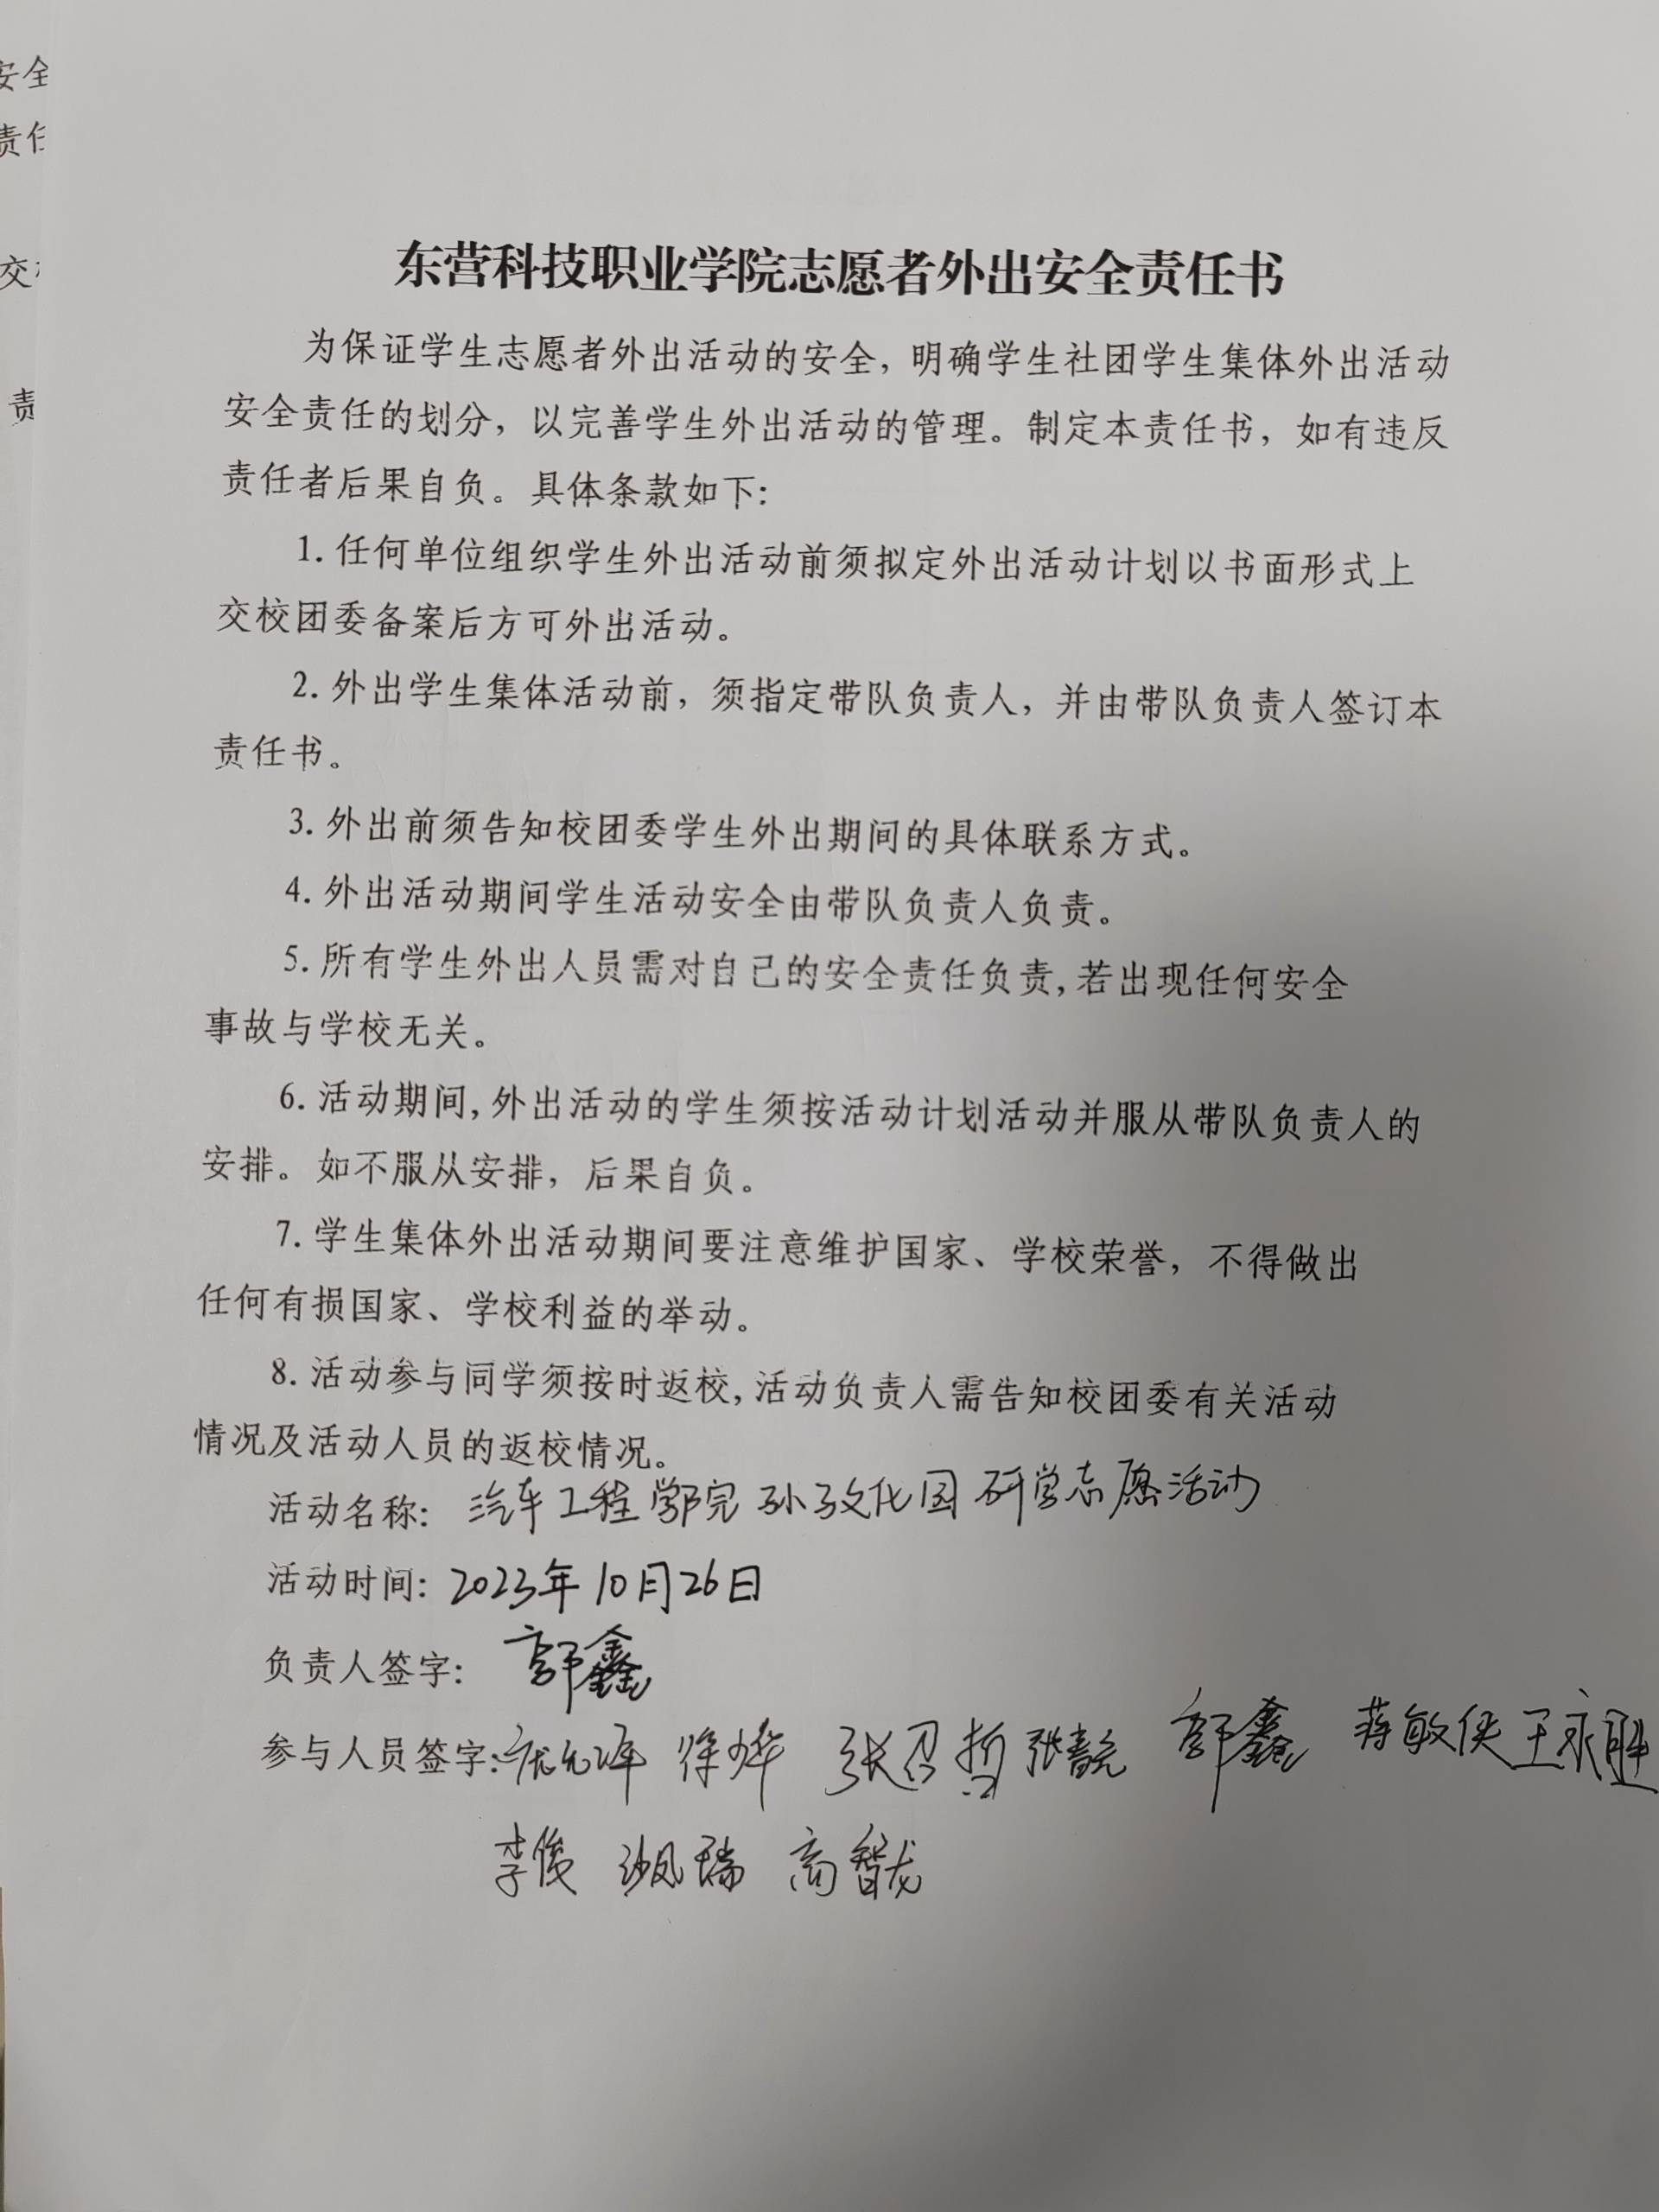 安全
责任
交
责
东营科技职业学院志愿者外出安全责任书
为保证学生志愿者外出活动的安全，明确学生社团学生集体外出活动
安全责任的划分，以完善学生外出活动的管理。制定本责任书，如有违反
责任者后果自负。具体条款如下：
1. 任何单位组织学生外出活动前须拟定外出活动计划以书面形式上
交校团委备案后方可外出活动。
2. 外出学生集体活动前，须指定带队负责人，并由带队负责人签订本
责任书。
3. 外出前须告知校团委学生外出期间的具体联系方式。
4. 外出活动期间学生活动安全由带队负责人负责。
5. 所有学生外出人员需对自己的安全责任负责，若出现任何安全
事故与学校无关。
6. 活动期间，外出活动的学生须按活动计划活动并服从带队负责人的
安排。如不服从安排，后果自负。
7. 学生集体外出活动期间要注意维护国家、学校荣誉，不得做出
任何有损国家、学校利益的举动。
8. 活动参与同学须按时返校，活动负责人需告知校团委有关活动
情况及活动人员的返校情况。
活动名称：汽车工程学院孙子文化园研学志愿活动
活动时间：2023年10月26日
负责人签字：郭鑫
参与人员签字： 徐烨 张召哲 张靓 郭鑫 蒋敏侠 王永胜
李俊 高智龙